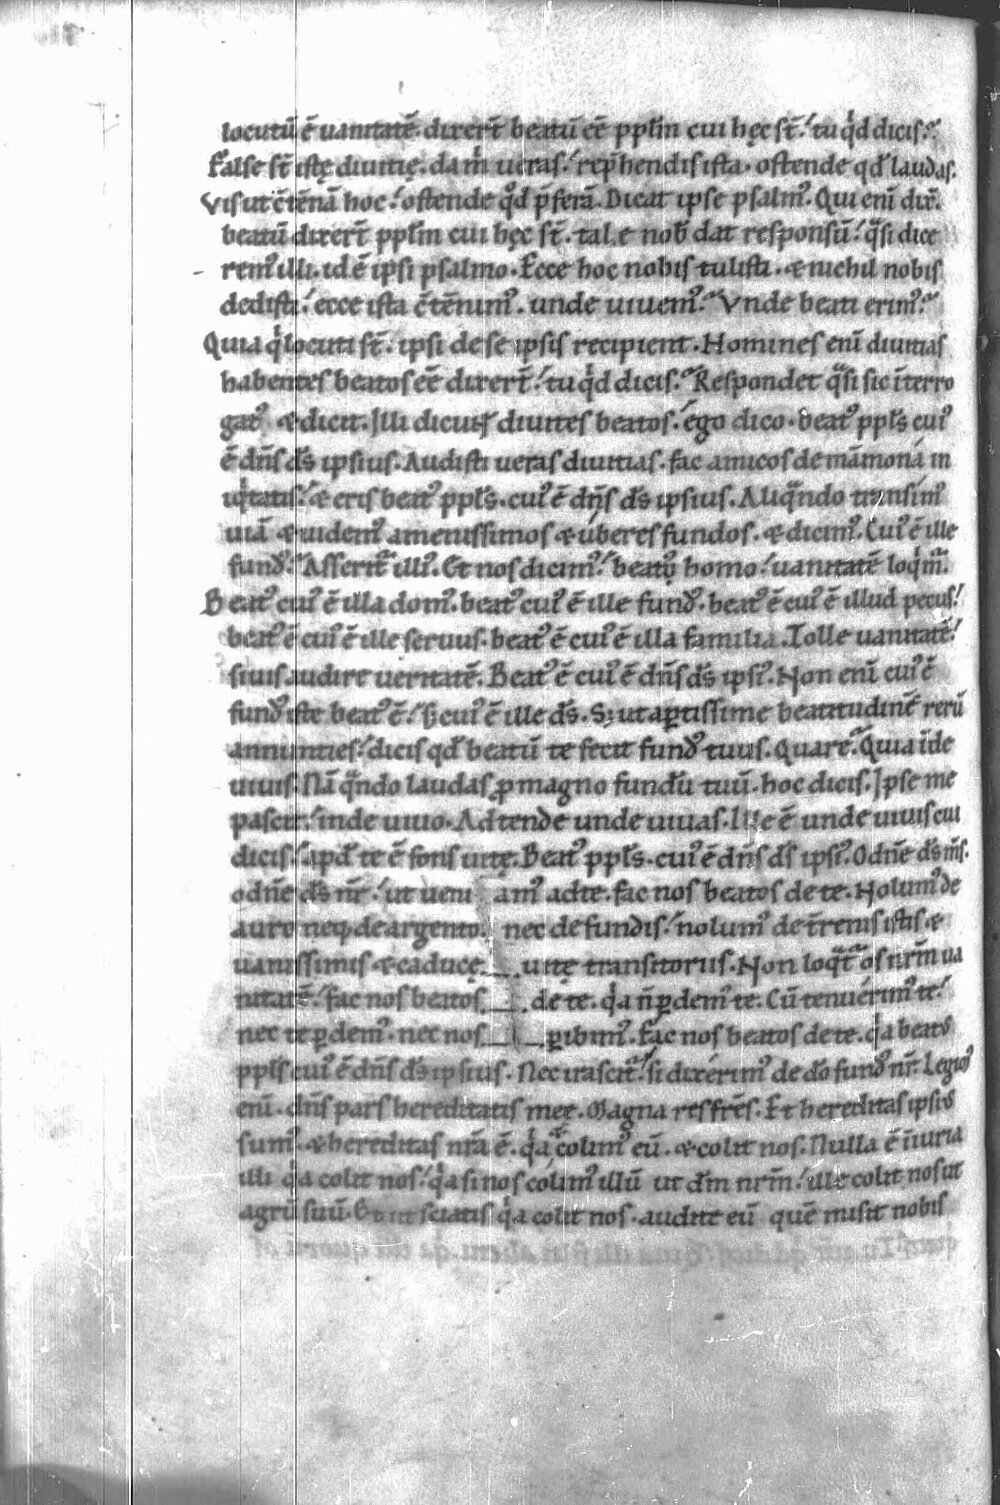 locutū ē uanitatē. dixert̄ beatū eē pplm̄ cui hęc st̄. tu qͥd dicis?
False st̄ istę diuitię. da m̄ ueras. rep̄hendis ista. ostende qd̄ laudas.
Vis ut c̄tēnā hoc. ostende qͦd p̄ferā. Dicat ipse psalmꝰ. Qui enī dix̄.
beatū dixert̄ pplm̄ cui hęc st̄. tale nob̄ dat responsū. qͣsi dice
remꝰ illi. id ē ipsi psalmo. Ecce hoc nobis tulisti. & nichil nobis
dedisti. ecce ista c̄tēnimꝰ. unde uiuemꝰ? Vnde beati erimꝰ?
Quia qͥ locuti st̄. ipsi de se ipsis recipient. Homines enī diuitias
habentes beatos eē dixert̄. tu qͥd dicis? Respondet qͣsi sic īterro
gatꝰ & dicit. Illi dicunt diuites beatos. ego dico. beatꝰ ppl̄s cuiꝰ
ē dn̄s ds̄ ipsius. Audisti ueras diuitias. fac amicos de māmona in
iqͥtatis. & eris beatꝰ ppl̄s. cuiꝰ ē dn̄s ds̄ ipsius. Aliqͣndo transimꝰ
uiā & uidemꝰ amenissimos & uberes fundos. & dicimꝰ. Cuiꝰ ē ille
fundꝰ? Asseritᷣ illiꝰ. Et nos dicimꝰ. beatꝰ homo. uanitatē loqͥmᷣ.
Beatꝰ cuiꝰ ē illa domꝰ. beatꝰ cuiꝰ ē ille fundꝰ. beatꝰ ē cuiꝰ ē illud pecus.
beatꝰ ē cuiꝰ ē ille seruus. beatꝰ ē cuiꝰ ē illa familia. Tolle uanitatē.
siuis audire ueritatē. Beatꝰ ē cuiꝰ ē dn̄s ds̄ ipsiꝰ. Non enī cuiꝰ ē
fundꝰ iste beatꝰ ē. s; cuiꝰ ē ille ds̄. S; ut aꝑtissime beatitudinē rerū
annunties. dicis qd̄ beatū te fecit fundꝰ tuus. Quare? Quia īde
uiuis. Nā qͣndo laudas ꝓ magno fundū tuū. hoc dicis. Ipse me
pascit. inde uiuo. Adtende unde uiuas. Ille ē unde uiuis cui
dicis. apd̄ te ē fons uitę. Beatꝰ ppl̄s. cuiꝰ ē dn̄s ds̄ ipsiꝰ. O dn̄e ds̄ m̄s.
o dn̄e ds̄ nr̄. ut ueni amꝰ ad te. fac nos beatos de te. Nolumꝰ de
auro neq; de argento. nec de fundis. nolumꝰ de t̄renis istis &
uanissimis & caducę uitę transitoriis. Non loqͣtᷣ os nr̄m ua
nitatē. fac nos beatos de te. qͥa n̄ ꝑdemꝰ te. Cū tenuerimꝰ te.
nec te ꝑdemꝰ. nec nos ꝑibimꝰ. Fac nos beatos de te. qͥa beatꝰ
ppl̄s cuiꝰ ē dn̄s ds̄ ipsius. Nec irascitᷣ. si dixerimꝰ de dō fundꝰ nr̄. Legimꝰ
enī. dn̄s pars hereditatis meę. Magna res fr̄es. Et hereditas ipsiꝰ
sumꝰ. & hereditas nr̄a ē. qͥa & colimꝰ eū. & colit nos. Nulla ē īiuria
illi qͥa colit nos. qͥa si nos colimꝰ illū ut dm̄ nr̄m. ille colit nos ut
agrū suū. Et ut sciatis qͥa colit nos. audite eū quē misit nobis